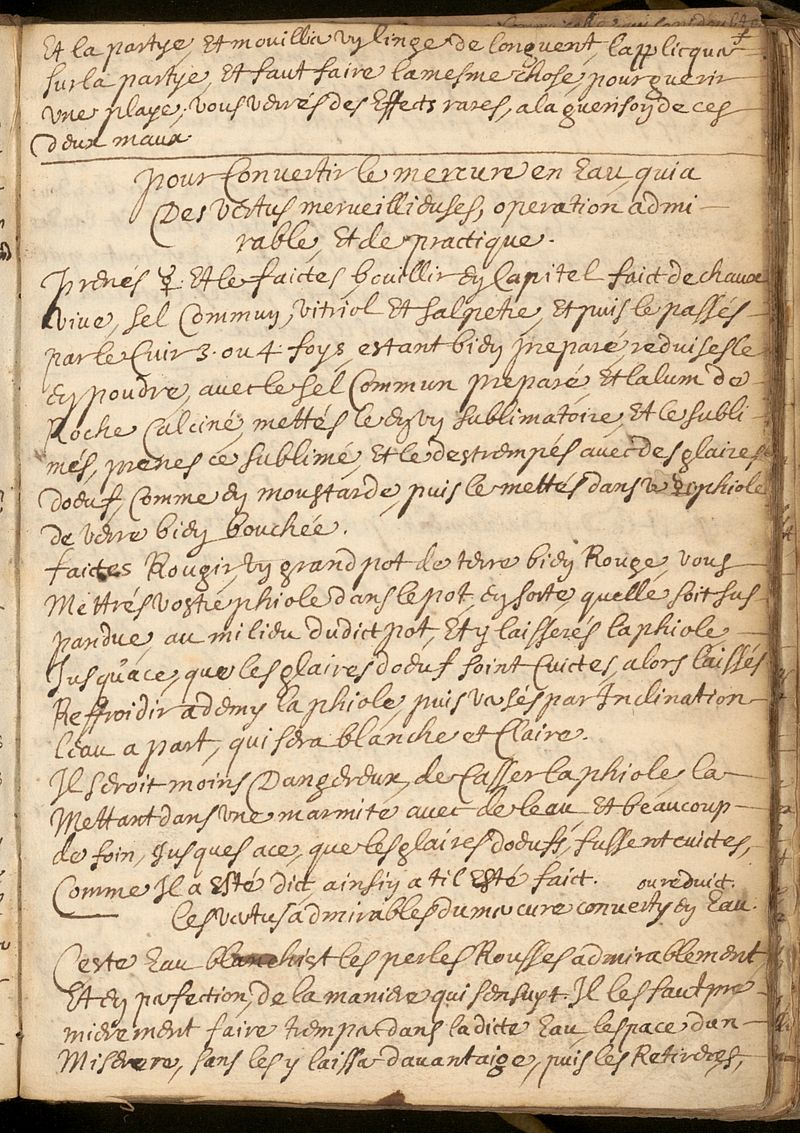 Et la partye, Et mouillia vy linge de longuent, lapplicquer
sur la partye, Et faut faire la mesme chose, pour guerir
vne playe, vous verrés des Effects rares, a la guerisoy de ces
deux maux
pour Convertir le mercure en Eau, qui a
Des vertus merveillieuses, operation admi-
rable, Et de practique.
Prenes ☿ Et le faictes bouillir ey Capitel faict de chaux
vive, sel Commuy, vitriol Et salpetre, Et puis le passés
par le Cuir 3. ou 4. foys, estant biey preparé, reduises le
Ey poudre, avec le sel Commun preparé, Et lalum de
Roche Calciné, mettés le ey vy sublimatoire, Et le subli-
més, prenes ce sublimé, Et le destrempés avec des glaires
doeuf, Comme Ey moustarde, puis le mettés dans phiole
de verre biey bouchée.
faictes Rougir vy grand pot de terre biey Rouge, vous
Mettrés vostre phiole dans le pot, ey sorte quelle soit sus
pandue, au milieu dudict pot, Et y laisserés la phiole
Jusqu'a ce, que les glaires doeuf soint Cuictes, alors laissés
Reffroidir a demy la phiole, puis versés par Inclination
l'eau a part, qui sera blanche et Claire.
Il seroit moins Dangereux, de Casser la phiole, la
Mettant dans vne marmite avec de leau, Et beaucoup
de foin, Jusques a ce, que les glaires doeuff, fussent cuictes,
Comme Il a Esté dict, ainsiy a til Esté faict. ou reduict.
les vertus admirables du mercure converty ey Eau.
Ceste Eau blanchist les perles Rousses admirablement,
Et ey perfection, de la maniere qui sensuyt. Il les faut pre
mierement faire tremper dans la dicte Eau, lespace dun
Miserere, sans les y laisser davantaige, puis les Retireres,